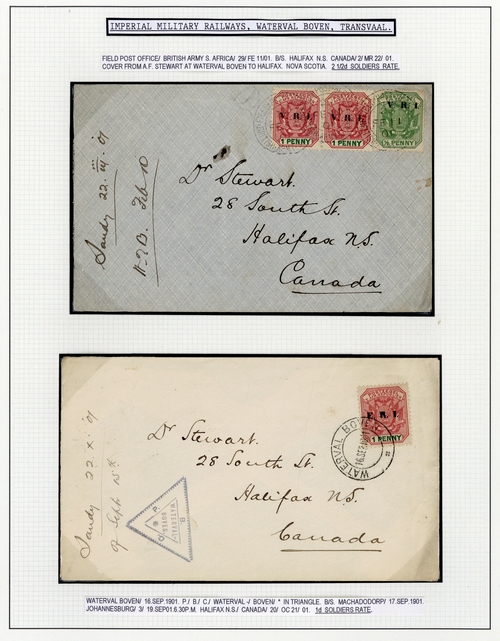 IMPERIAL MILITARY RAILWAYS, WATERVAL BOVEN, TRANSVAAL.
FIELD POST OFFICE/ BRITISH ARMY S. AFRICA/ 29/ FE 11/01. B/S. HALIFAX N.S. CANADA/ 2/ MR 22/ 01.
COVER FROM A.F. STEWART AT WATERVAL BOVEN TO HALIFAX. NOVA SCOTIA. 2 1/2d SOLDIERS RATE.
V. R. I.
1 PENNY
V. R. I.
1 PENNY
V. R. I.
Sandy 22. III. 01
Feb 10
Dr Stewart.
28 South St.
Halifax N.S.
Canada
E. R. I.
1 PENNY
WATERVAL BOVEN
Sandy 22. X. 01
of Sept 15th
Dr Stewart.
28 South St.
Halifax N.S.
Canada
WATERVAL BOVEN/ 16.SEP.1901. P./ B./ C./ WATERVAL-/ BOVEN/ * IN TRIANGLE. B/S. MACHADODORP/ 17.SEP.1901.
JOHANNESBURG/ 3/ 19.SEP01.6.30P.M. HALIFAX N.S./ CANADA/ 20/ OC 21/ 01. 1d SOLDIERS RATE.